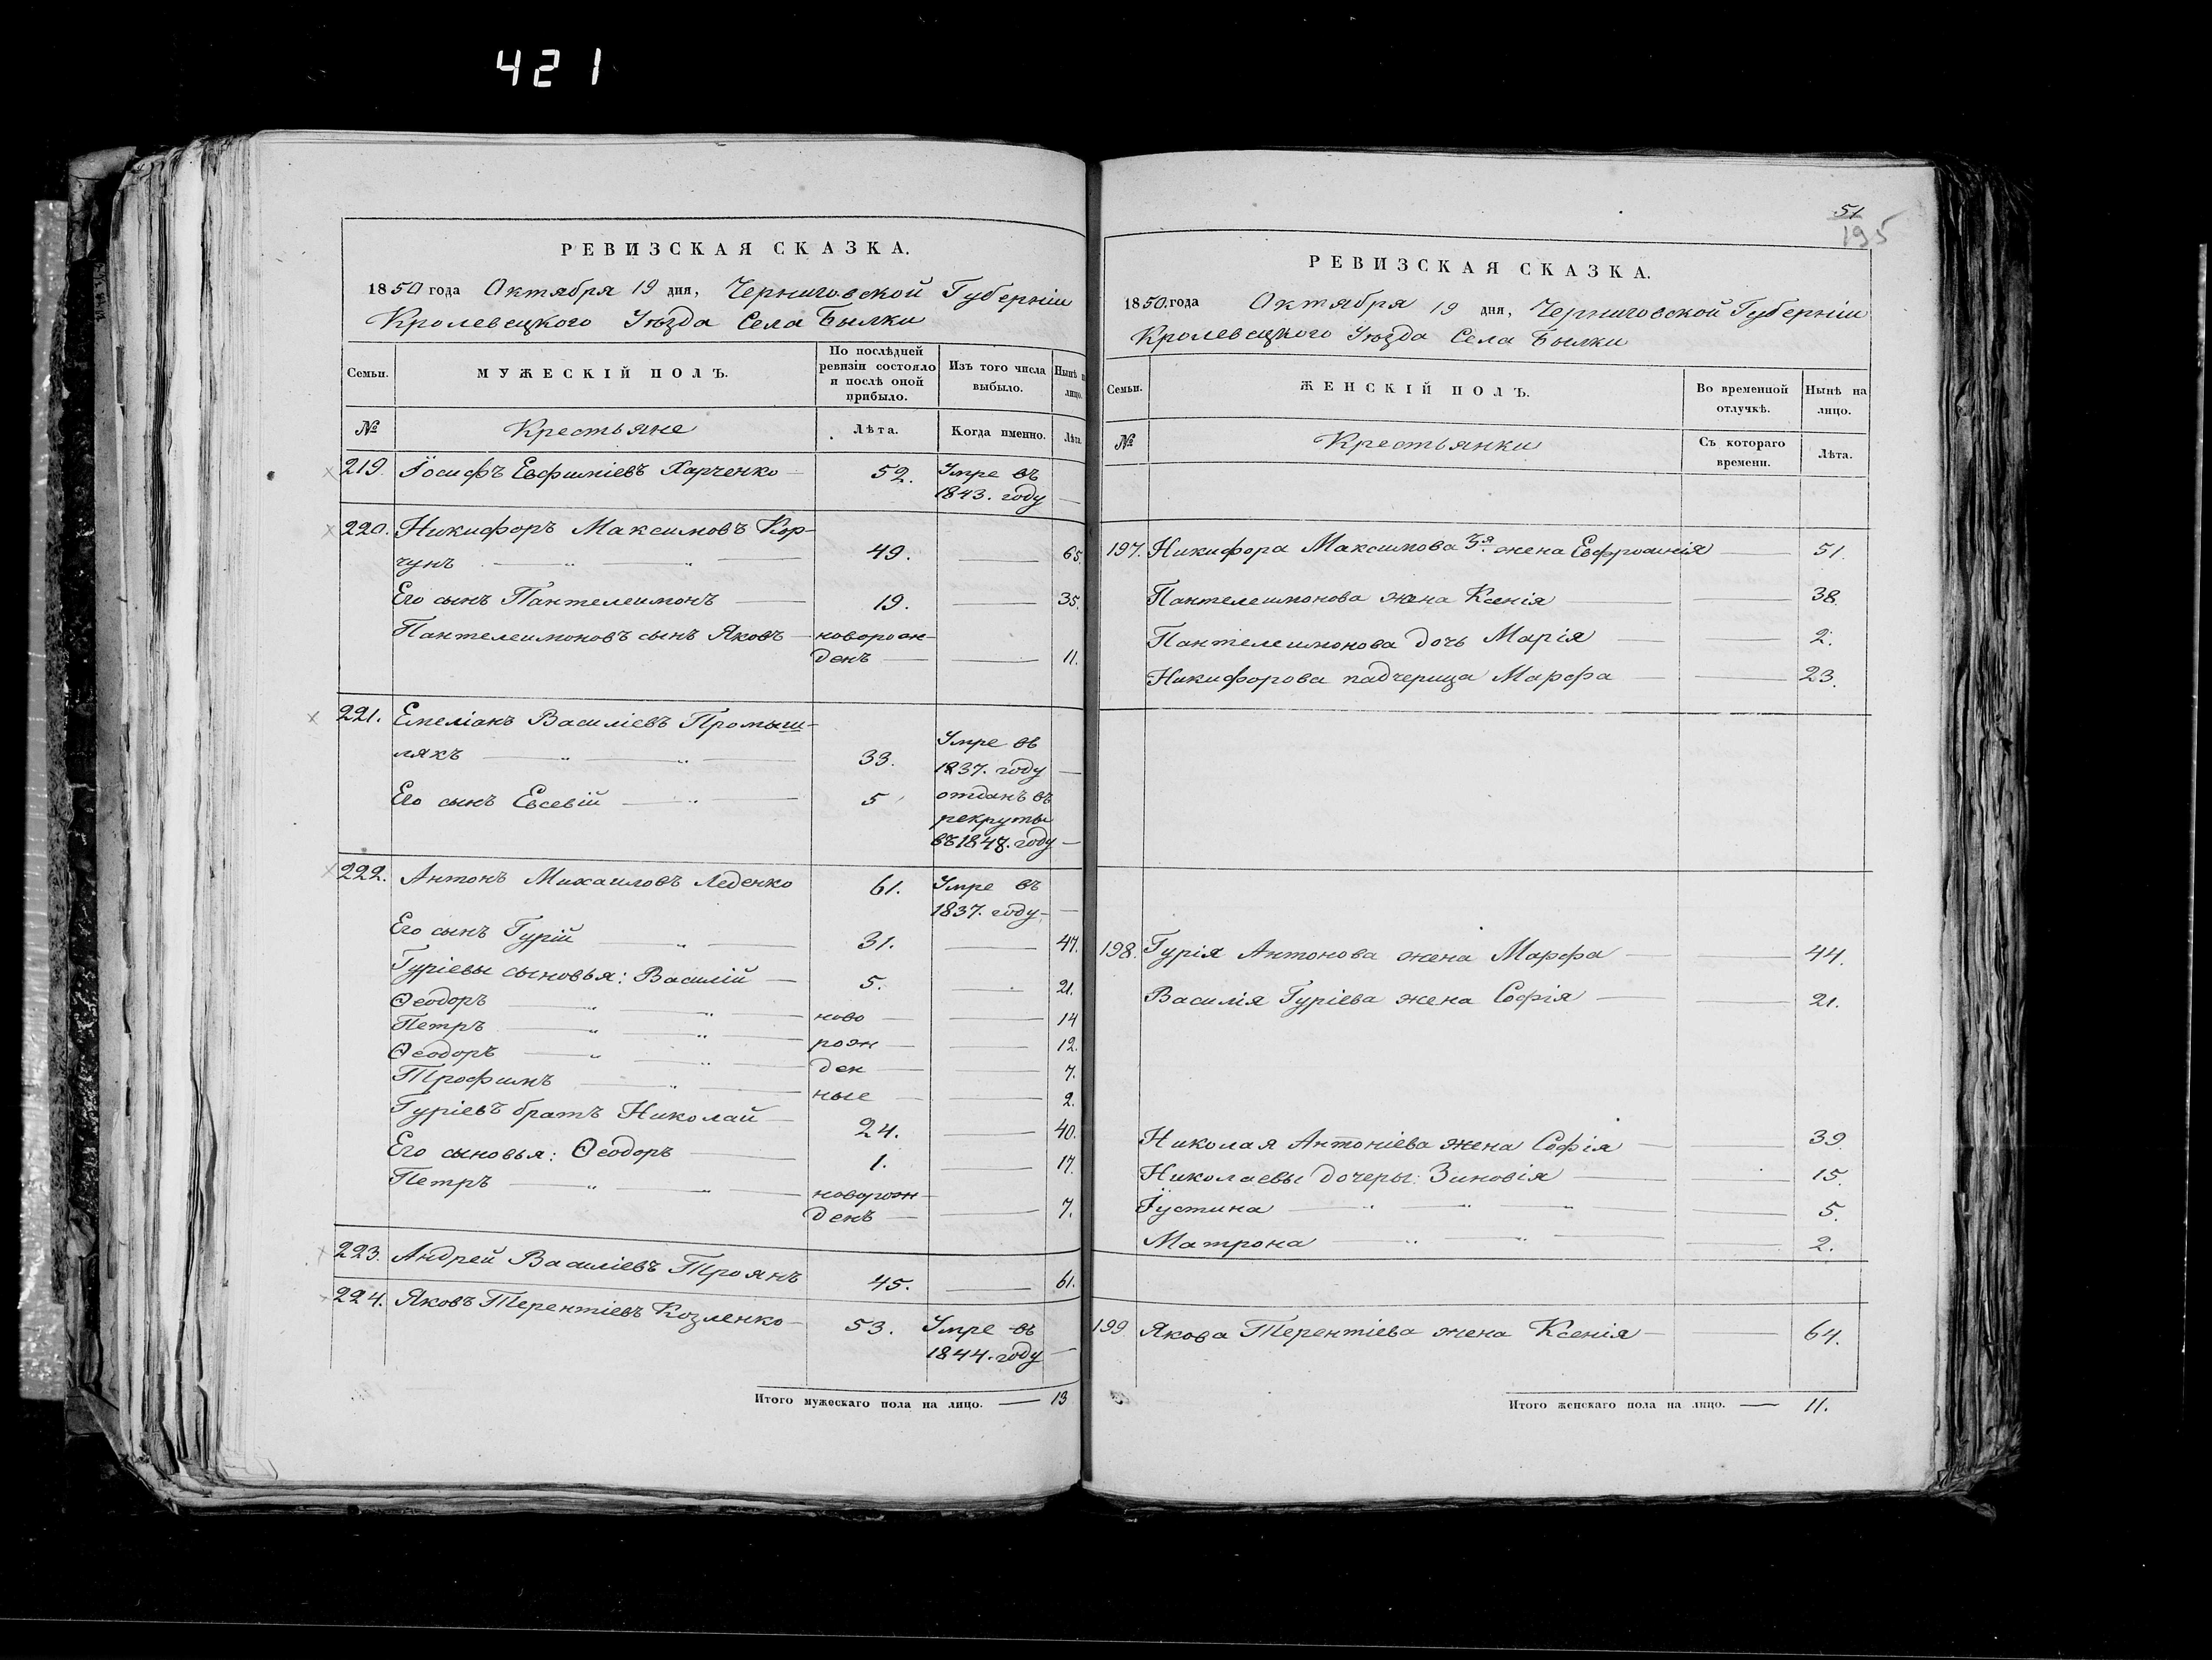 421
РЕВИЗСКАЯ СКАЗКА.
1850 года Октября 19 дня, Черниговской Губерніи
Кролевецкого Уѣзда Села Былки
Семьи. МУЖЕСКІЙ ПОЛЪ. По послѣдней ревизіи состояло и послѣ оной прибыло. Изъ того числа выбыло. Нынѣ на лицо.
№ Крестьяне Лѣта. Когда именно. Лѣта.
219. Іосифъ Евфиміевъ Харченко 52. Умре въ
1843. году —
220. Никифоръ Максимовъ Кор-
чунъ 49. — 65.
Его сынъ Пантелеимонъ 19. — 35.
Пантелеимоновъ сынъ Яковъ — новорож-
денъ — 11.
221. Емеліанъ Василіевъ Промыш-
лякъ 33. Умре въ
1837. году —
Его сынъ Евсевій 5 отданъ въ
рекруты
въ 1848. году —
222. Антонъ Михаиловъ Леденко 61. Умре въ
1837. году —
Его сынъ Гурій 31. — 47.
Гуріевы сыновья: Василій — 5. — 21.
Ѳеодоръ ново — 14
Петръ рож — 12.
Ѳеодоръ ден — 7.
Трофимъ ные — 2.
Гуріевъ братъ Николай 24. — 40.
Его сыновья: Ѳеодоръ 1. — 17.
Петръ новорож-
денъ — 7.
223. Андрей Василіевъ Троянъ 45. — 61.
224. Яковъ Терентіевъ Козленко 53. Умре въ
1844. году —
Итого мужескаго пола на лицо. — 13
51
195
РЕВИЗСКАЯ СКАЗКА.
1850. года Октября 19 дня, Черниговской Губерніи
Кролевецкого Уѣзда Села Былки
Семьи. ЖЕНСКІЙ ПОЛЪ. Во временной отлучкѣ. Нынѣ на лицо.
№ Крестьянки Съ котораго времени. Лѣта.
197. Никифора Максимова 3я. жена Евфросинія — 51.
Пантелеимонова жена Ксенія — 38.
Пантелеимонова дочь Марія — 2.
Никифорова падчерица Марфа — 23.
198. Гурія Антонова жена Марфа — 44.
Василія Гуріева жена Софія — 21.
Николая Антоніева жена Софія — 39.
Николаевы дочеры: Зиновія — 15.
Іустина — 5.
Матрона — 2.
199. Якова Терентіева жена Ксенія — 64.
Итого женскаго пола на лицо. — 11.